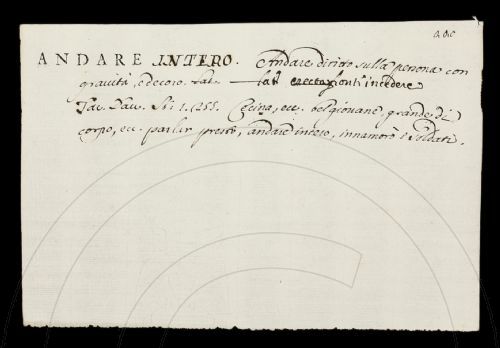 ANDARE INTERO. Andare diritto sulla persona con
gravità, e decoro. Lat. incedere
Tac. Dav. Sti. 1. 255. Cecina, ecc. bel giovane, grande di
corpo, ec. parlar presto, andare intero, innamorò i soldati.